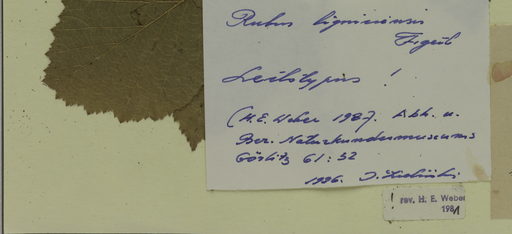 Rubus lignicensis
Figert
Lectotypus !
(H. E. Weber 1987. Abh. u.
Ber. Naturkundemuseums
Görlitz 61: 52
1996. J.
! rev. H. E. Weber
1981